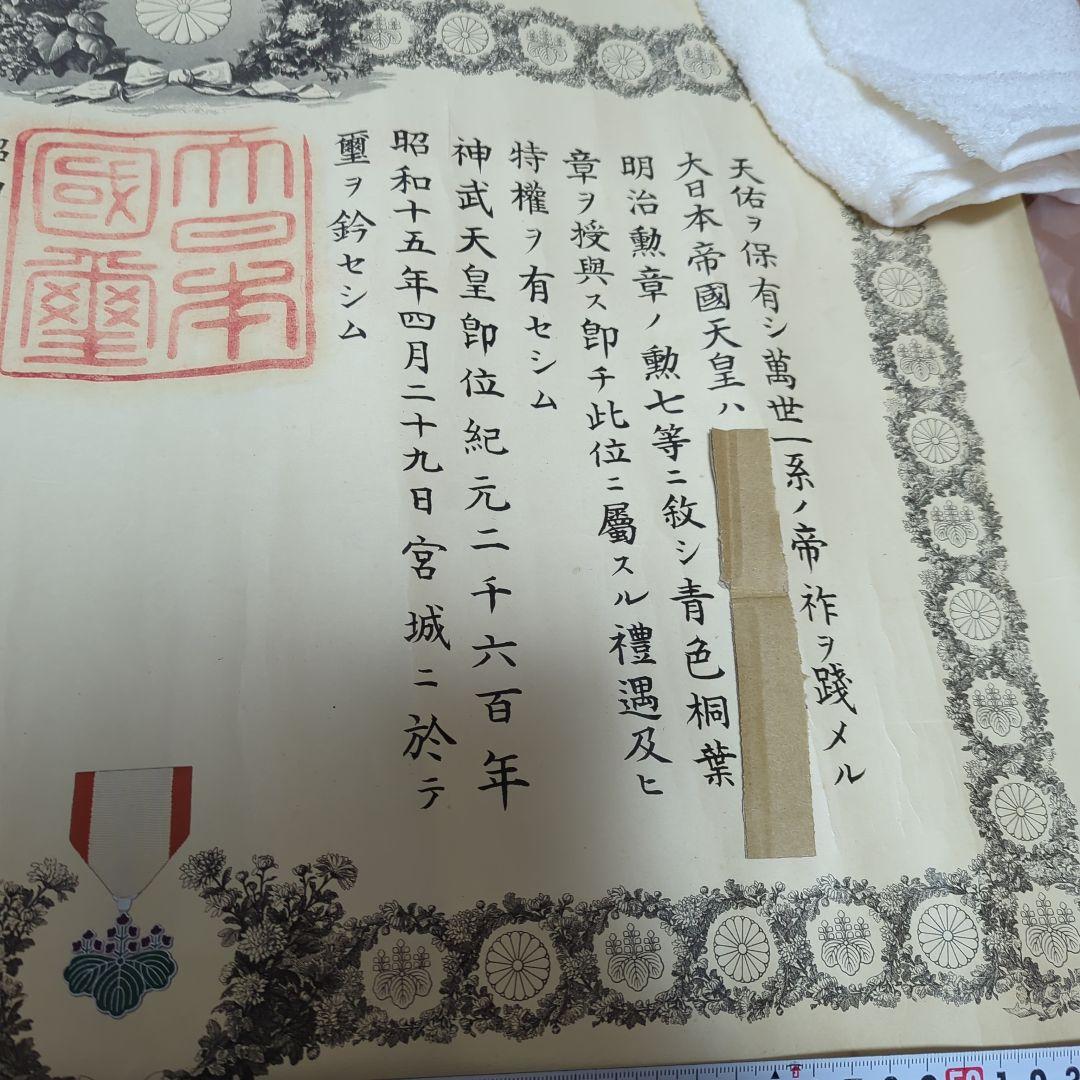 天佑ヲ保有シ萬世一系ノ帝祚ヲ踐メル
大日本帝國天皇ハ
明治勲章ノ勲七等ニ敘シ青色桐葉
章ヲ授與ス卽チ此位ニ屬スル禮遇及ヒ
特權ヲ有セシム
神武天皇卽位紀元二千六百年
昭和十五年四月二十九日宮城ニ於テ
璽ヲ鈐セシム
大日本
國璽